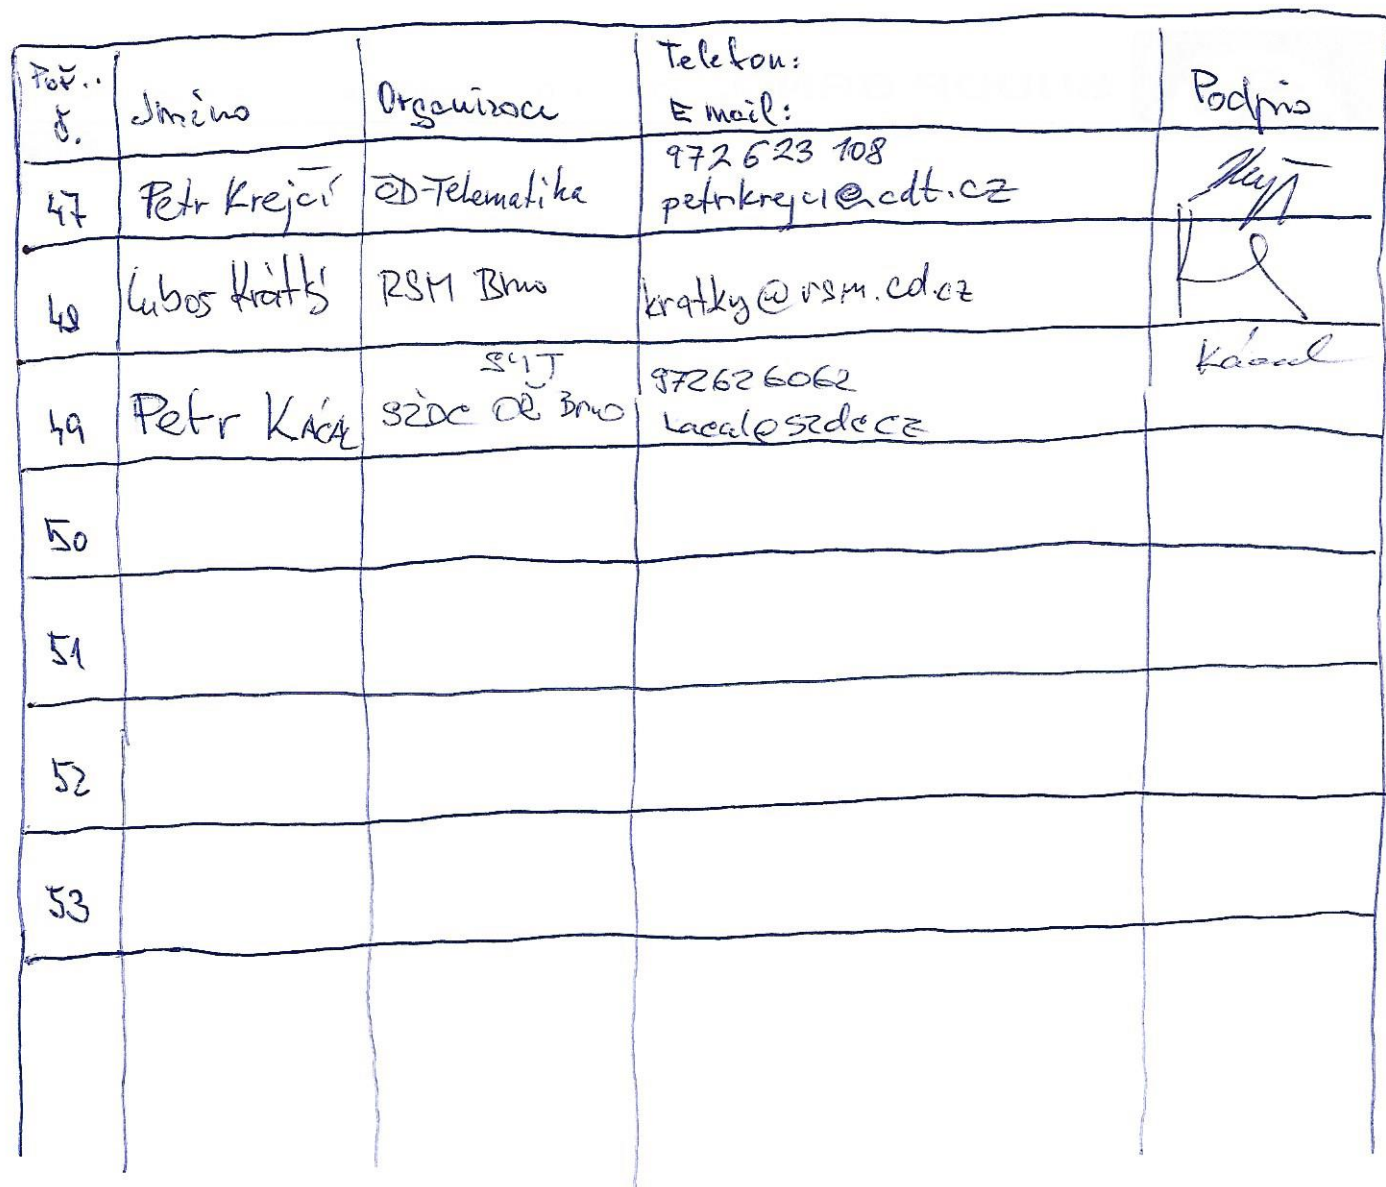 Poř..
č.
Jméno
Organizace
Telefon:
E mail:
Podpis
47
Petr Krejčí
ČD-Telematika
972 623 108
petr.krejci@cdt.cz
48
Luboš Krátký
RSM Brno
kratky@rsm.cd.cz
49
Petr KÁČAL
SŽDC OŘ Brno
972626062
kacal@szdc.cz
Káčal
50
51
52
53